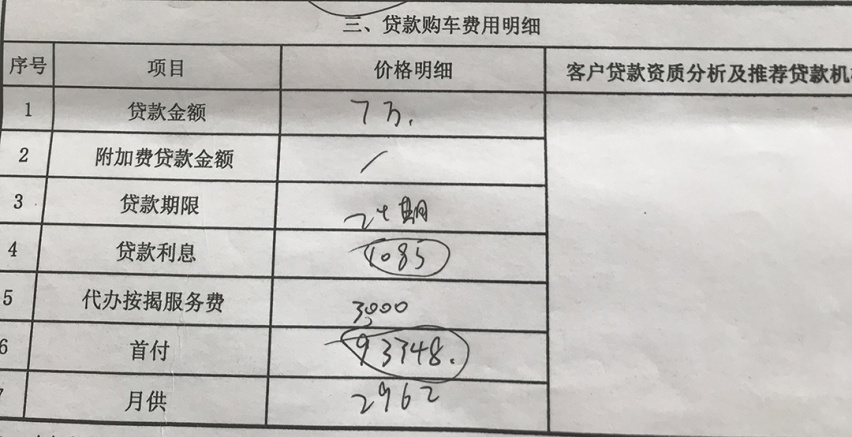 三、贷款购车费用明细
序号 项目 价格明细 客户贷款资质分析及推荐贷款机
1 贷款金额 7万.
2 附加费贷款金额 /
3 贷款期限 24期
4 贷款利息 1085
5 代办按揭服务费 3000
6 首付 93348.
月供 2962